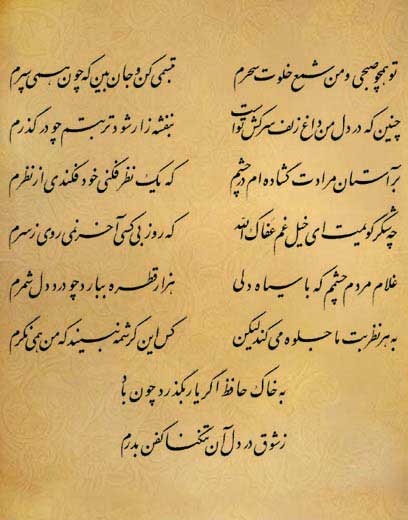 تو همچو صبحی و من شمع خلوت سحرم    تبسمی کن و جان بین که چون همی سپرم
چنین که در دل من داغ زلف سرکش توست    بنفشه زار شود تربتم چو در گذرم
بر آستان مرادت گشاده ام در چشم    که یک نظر فکنی خود فکندی از نظرم
چه شکر گویمت ای خیل غم عفاک الله    که روز بی کسی آخر نمی روی ز سرم
غلام مردم چشمم که با سیاه دلی    هزار قطره ببارد چو درد دل شمرم
به هر نظر بت ما جلوه می کند لیکن    کس این کرشمه نبیند که من همی نگرم
به خاک حافظ اگر یار بگذرد چون باد
ز شوق در دل آن تنگنا کفن بدرم